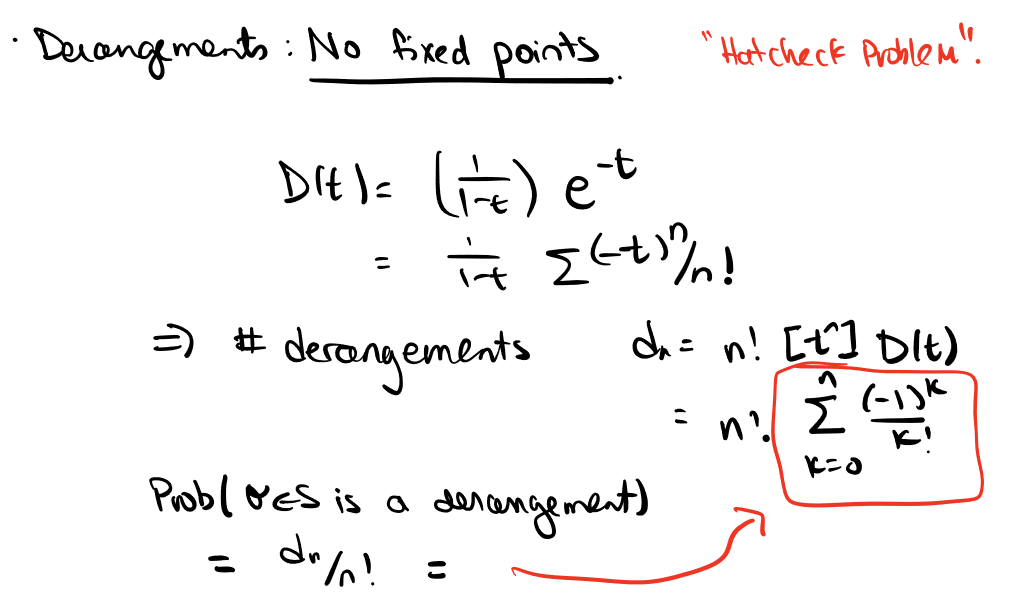 · Derangements : No fixed points. "Hatcheck Problem".
D(t) = (1/(1-t)) e^{-t}
= 1/(1-t) Σ (-t)^n/n!
⇒ # derangements d_n = n! [t^n] D(t)
= n! Σ_{k=0}^{n} (-1)^k/k!
Prob( σ∈S is a derangement)
= d_n/n! =